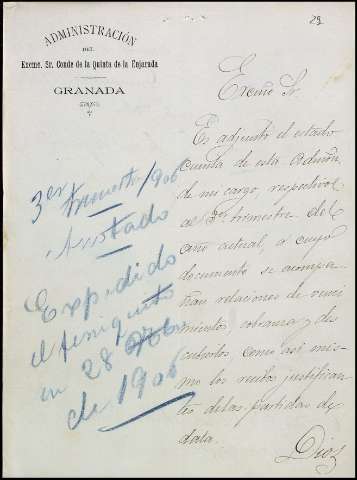 29
ADMINISTRACIÓN
DEL
Excmo. Sr. Conde de la Quinta de la Enjarada
GRANADA
3er trimestre/906
Anotado
Expedido
el finiquito
en 28
de 1906
Excmo Sr.
Es adjunto el estado
cuenta de esta Admón.
de mi cargo, respectivo
al 3er trimestre del
año actual, a cuyo
documento se acompa
ñan relaciones de venci
mientos, cobranza y des
cubiertos, como así mis
mo los justifican
tes de las partidas de
data.
Dios